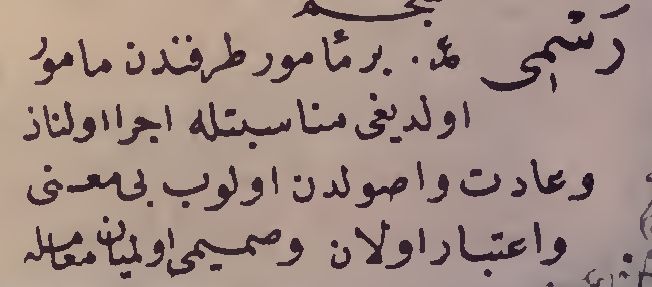 رَسْمِی عد. بر مأمور طرفندن مامور
اولدیغی مناسبتله اجرا اولنان
وعادت واصولدن اولوب بی معنی
واعتبار اولان وصمیمی اولمیان معامله